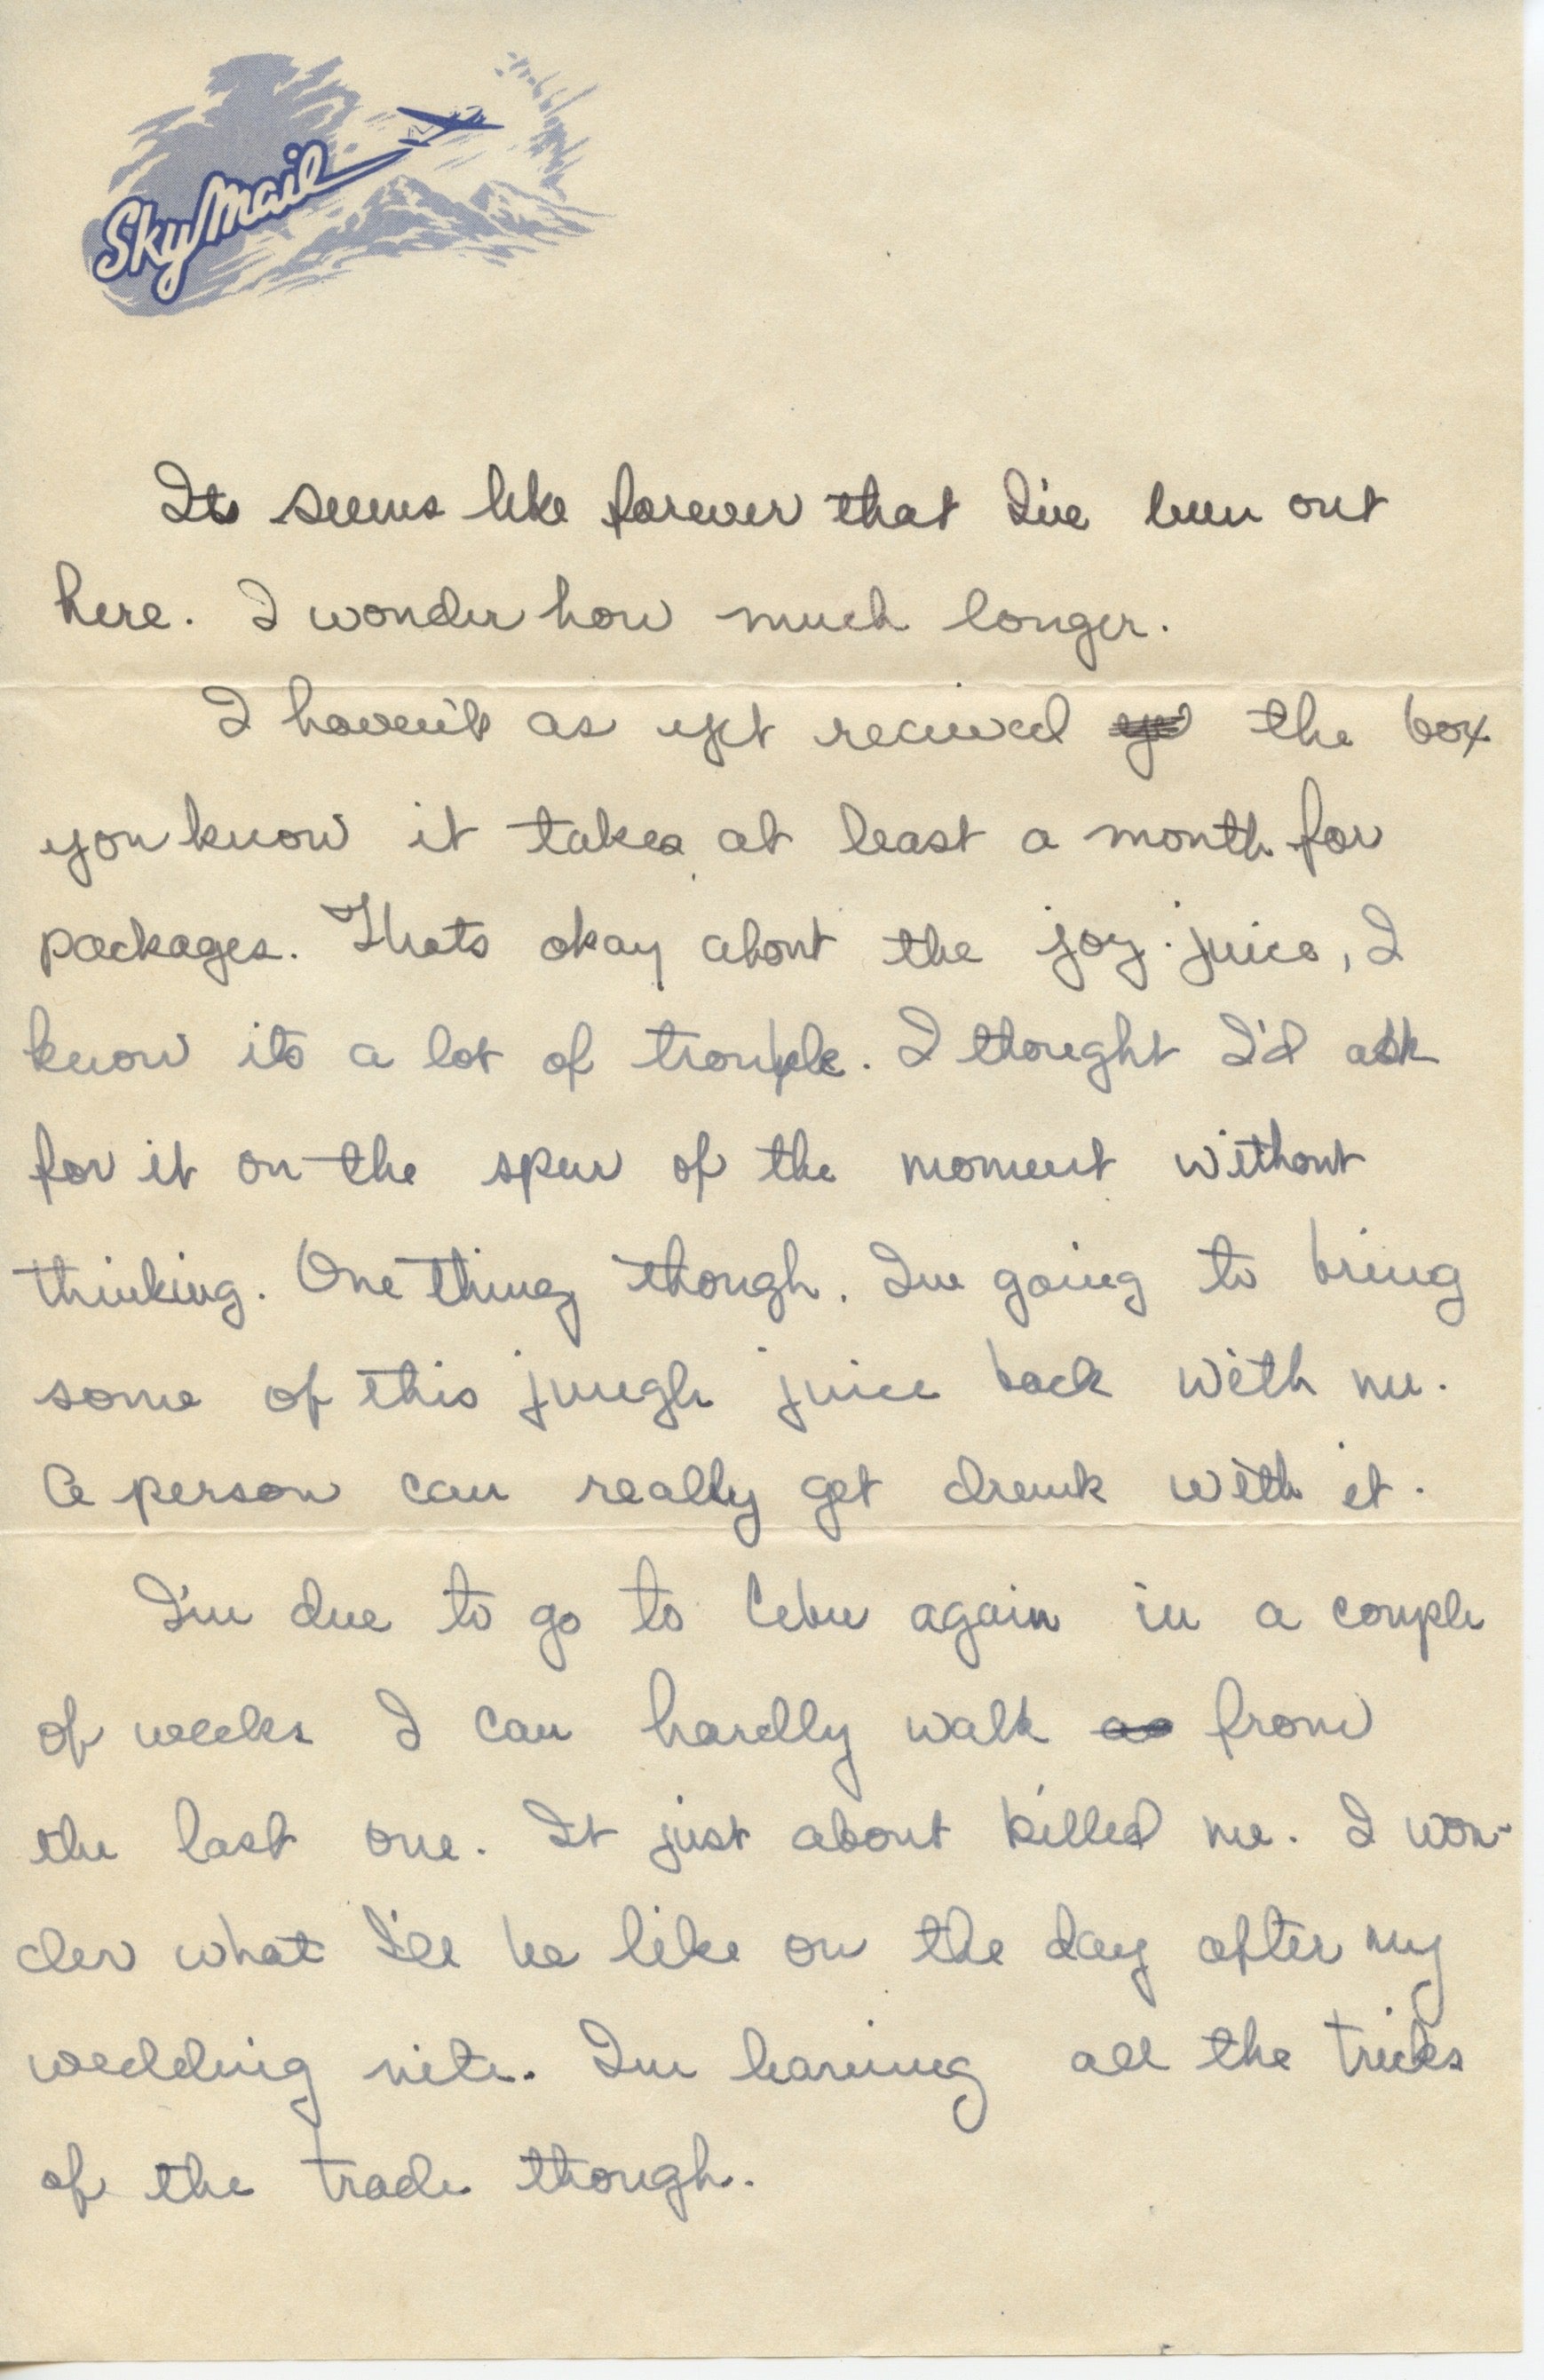 Sky Mail
Its seems like forever that I've been out
here. I wonder how much longer.
I haven't as yet recieved the box
you know it takes at least a month for
packages. Thats okay about the joy juice, I
know its a lot of trouble. I thought I'd ask
for it on the spur of the moment without
thinking. One thing though. Im going to bring
some of this jungle juice back with me.
A person can really get drunk with it.
I'm due to go to Cebu again in a couple
of weeks I can hardly walk from
the last one. It just about killed me. I won-
der what I'll be like on the day after my
wedding nite. Im learning all the tricks
of the trade though.